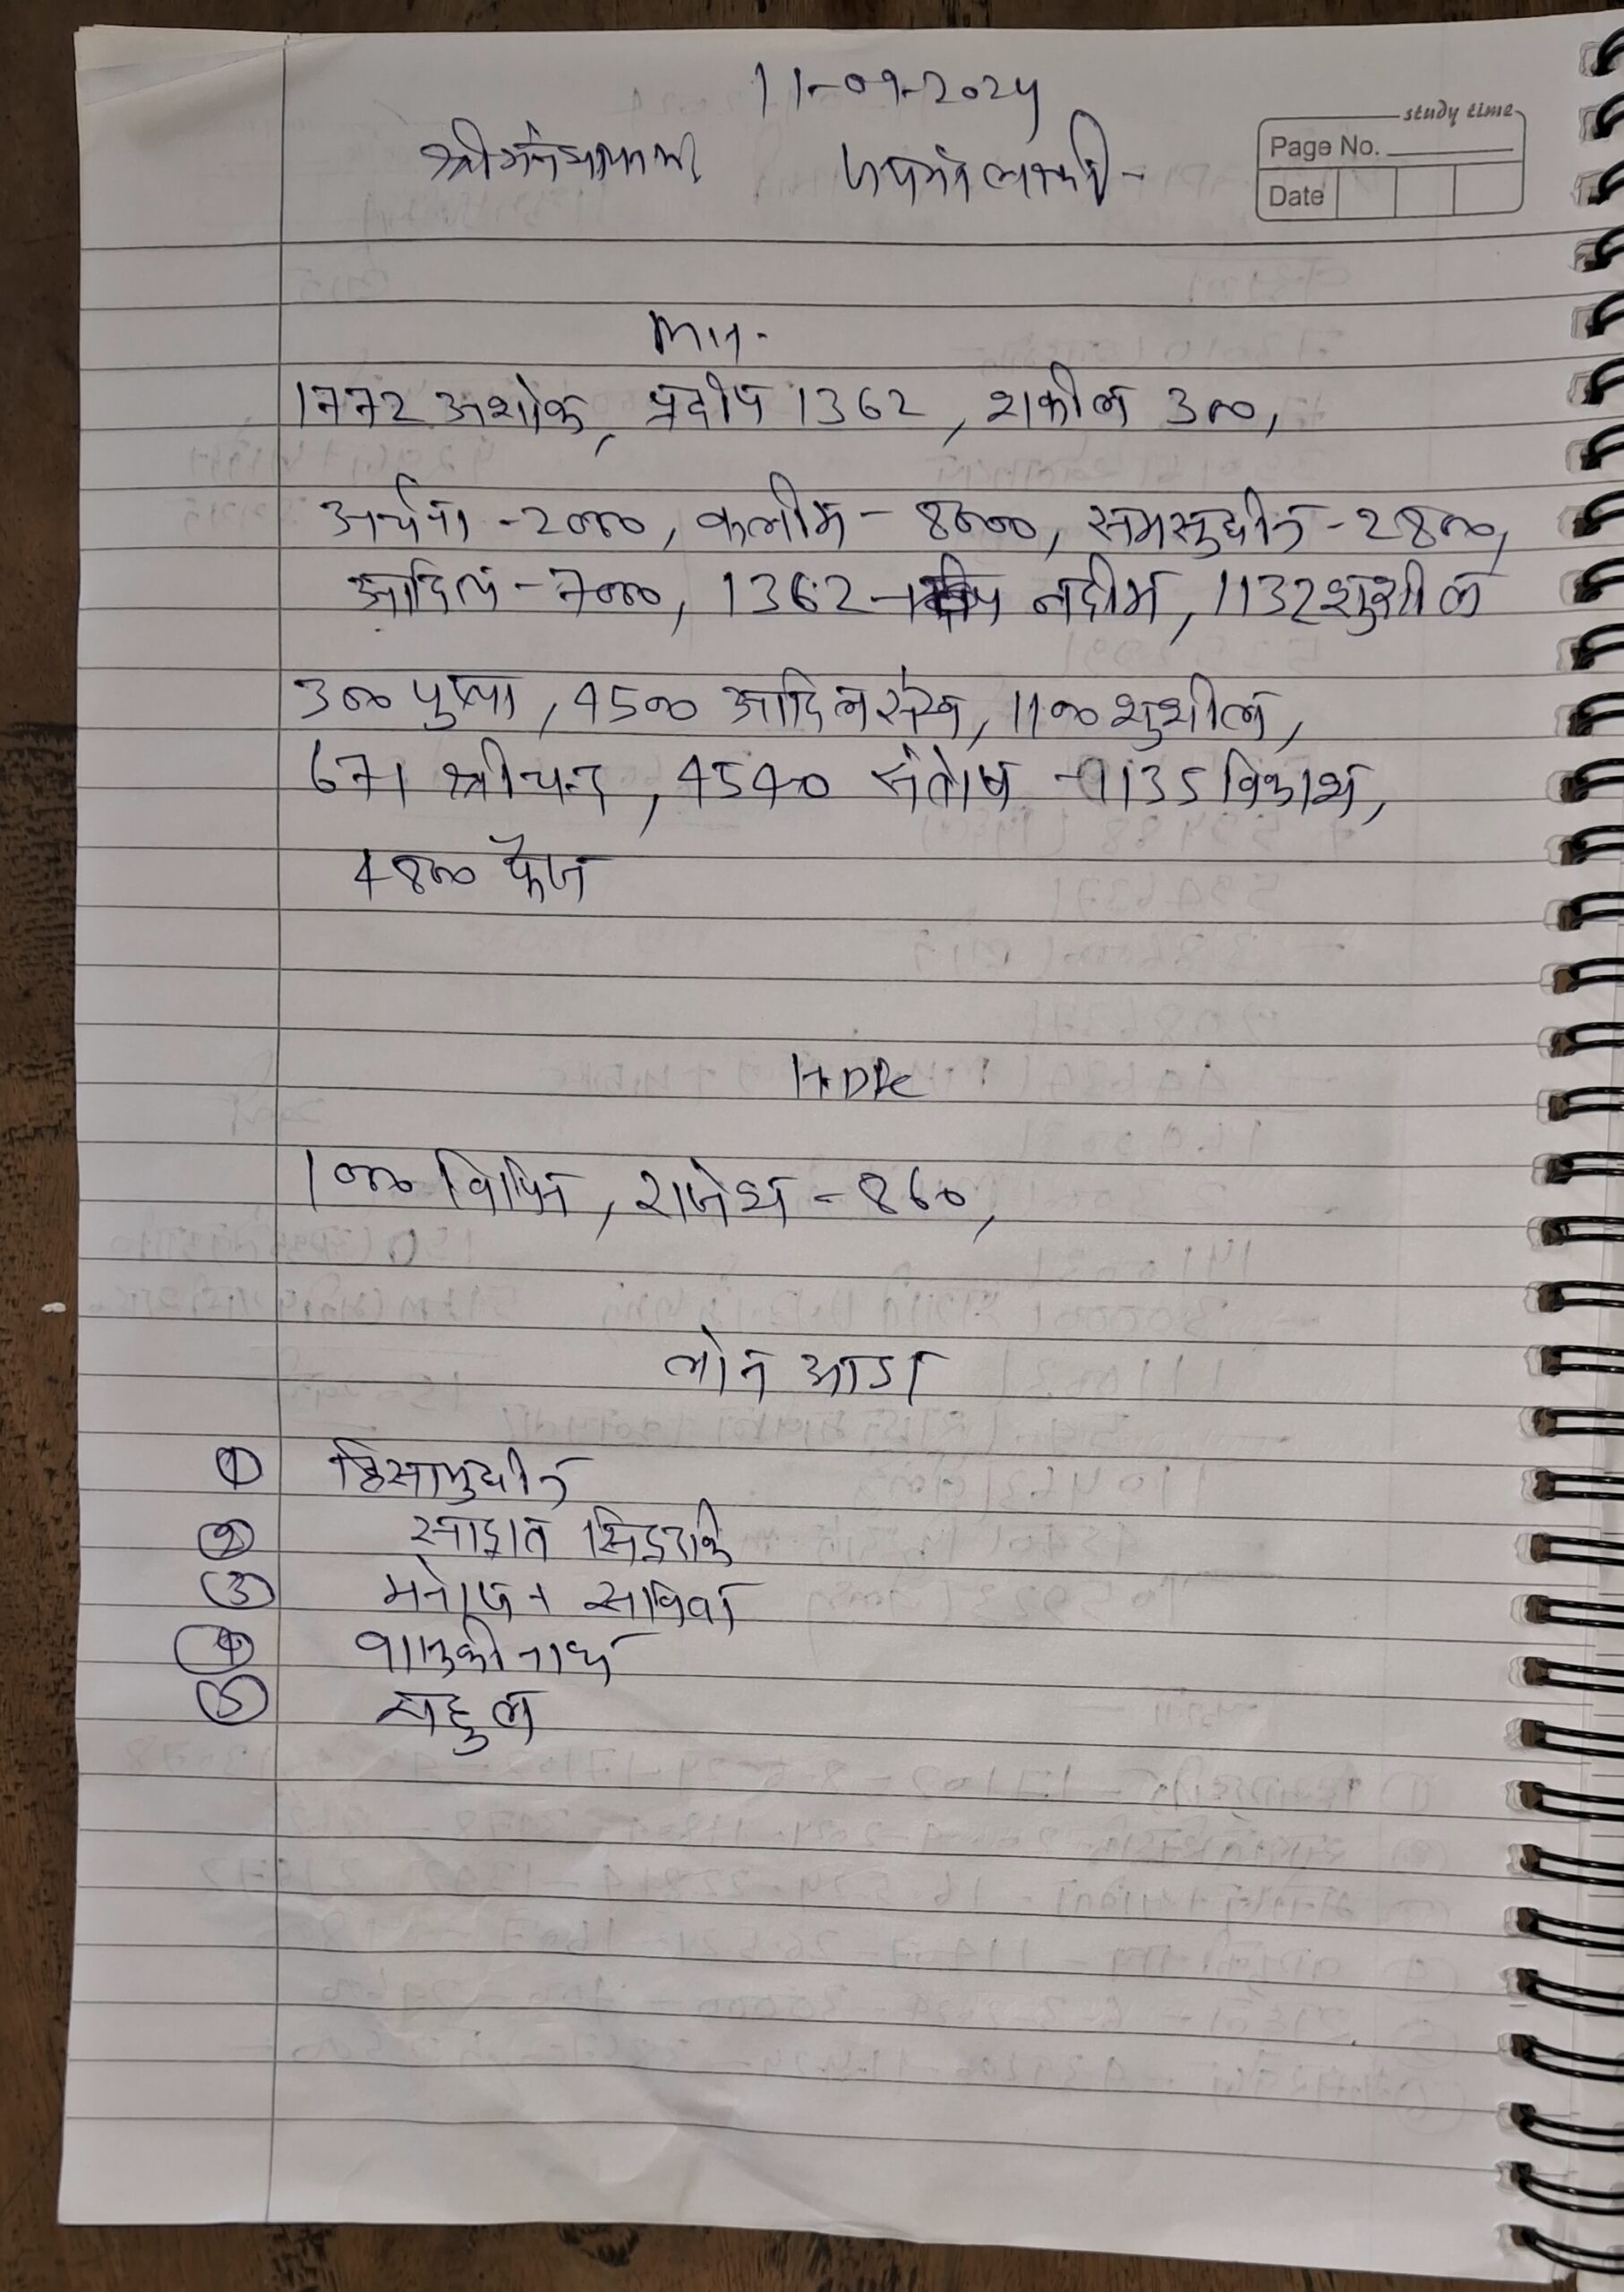 11-09-2024
study time
Page No.
Date
1772 अशोक, प्रदीप 1362, शकील 300,
अर्चना -2000, कलीम - 8000, समसुद्दीन -2800,
आदिल -7000, 1362 - नदीम, 1132 सुशील
300 पुष्पा, 4500 आदिल सेख, 1100 सुशील,
671 श्रीचन्द, 4540 संतोष - 1135 विकाश,
4800 फैज
1000 विपिन, राजेश - 860,
लोन
① हिसामुद्दीन
②
③ मनोज + सविता
④
⑤ राहुल